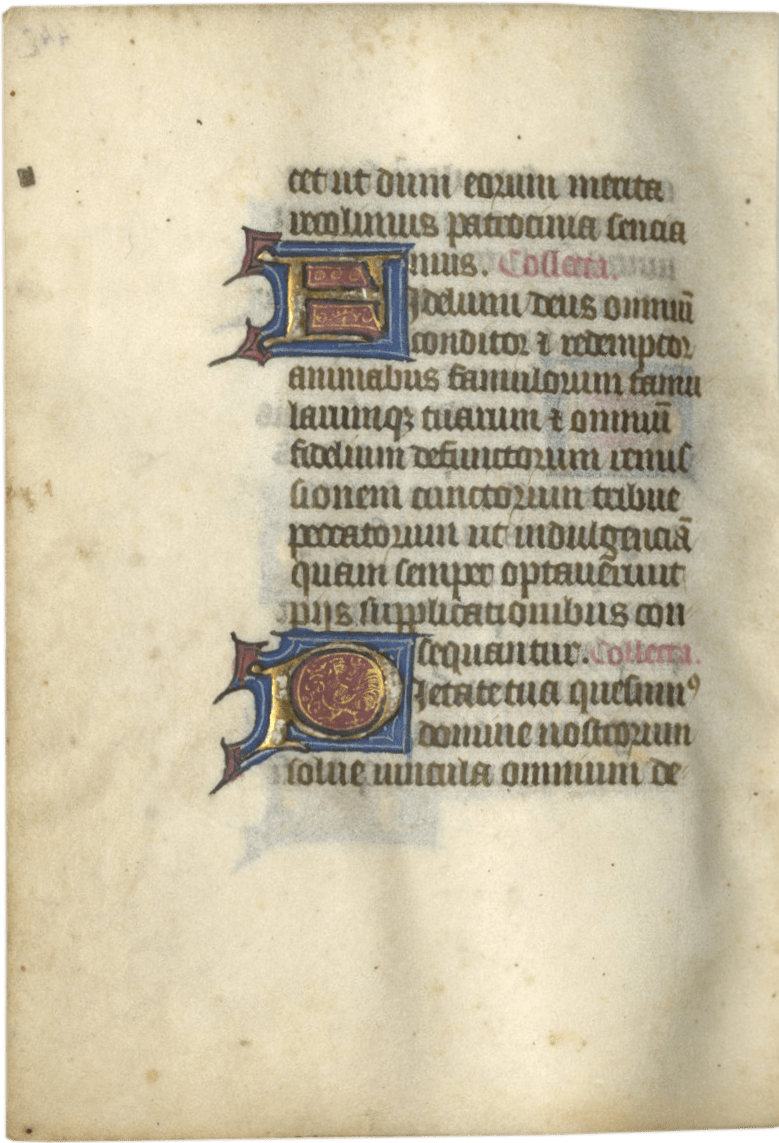 cet ut dum eorum merita
recolimus patrocinia sencia
mus. Collecta.
Fidelium deus omniū
conditor ⁊ redemptor
animabus famulorum famu
larumqꝫ tuarum ⁊ omniū
fidelium defunctorum remis
sionem cunctorum tribue
peccatorum ut indulgenciā
quam semper optauerunt
piis supplicationibus con
sequantur. Collecta.
Pietate tua quesumꝰ
domine nostrorum
solue uincula omnium de